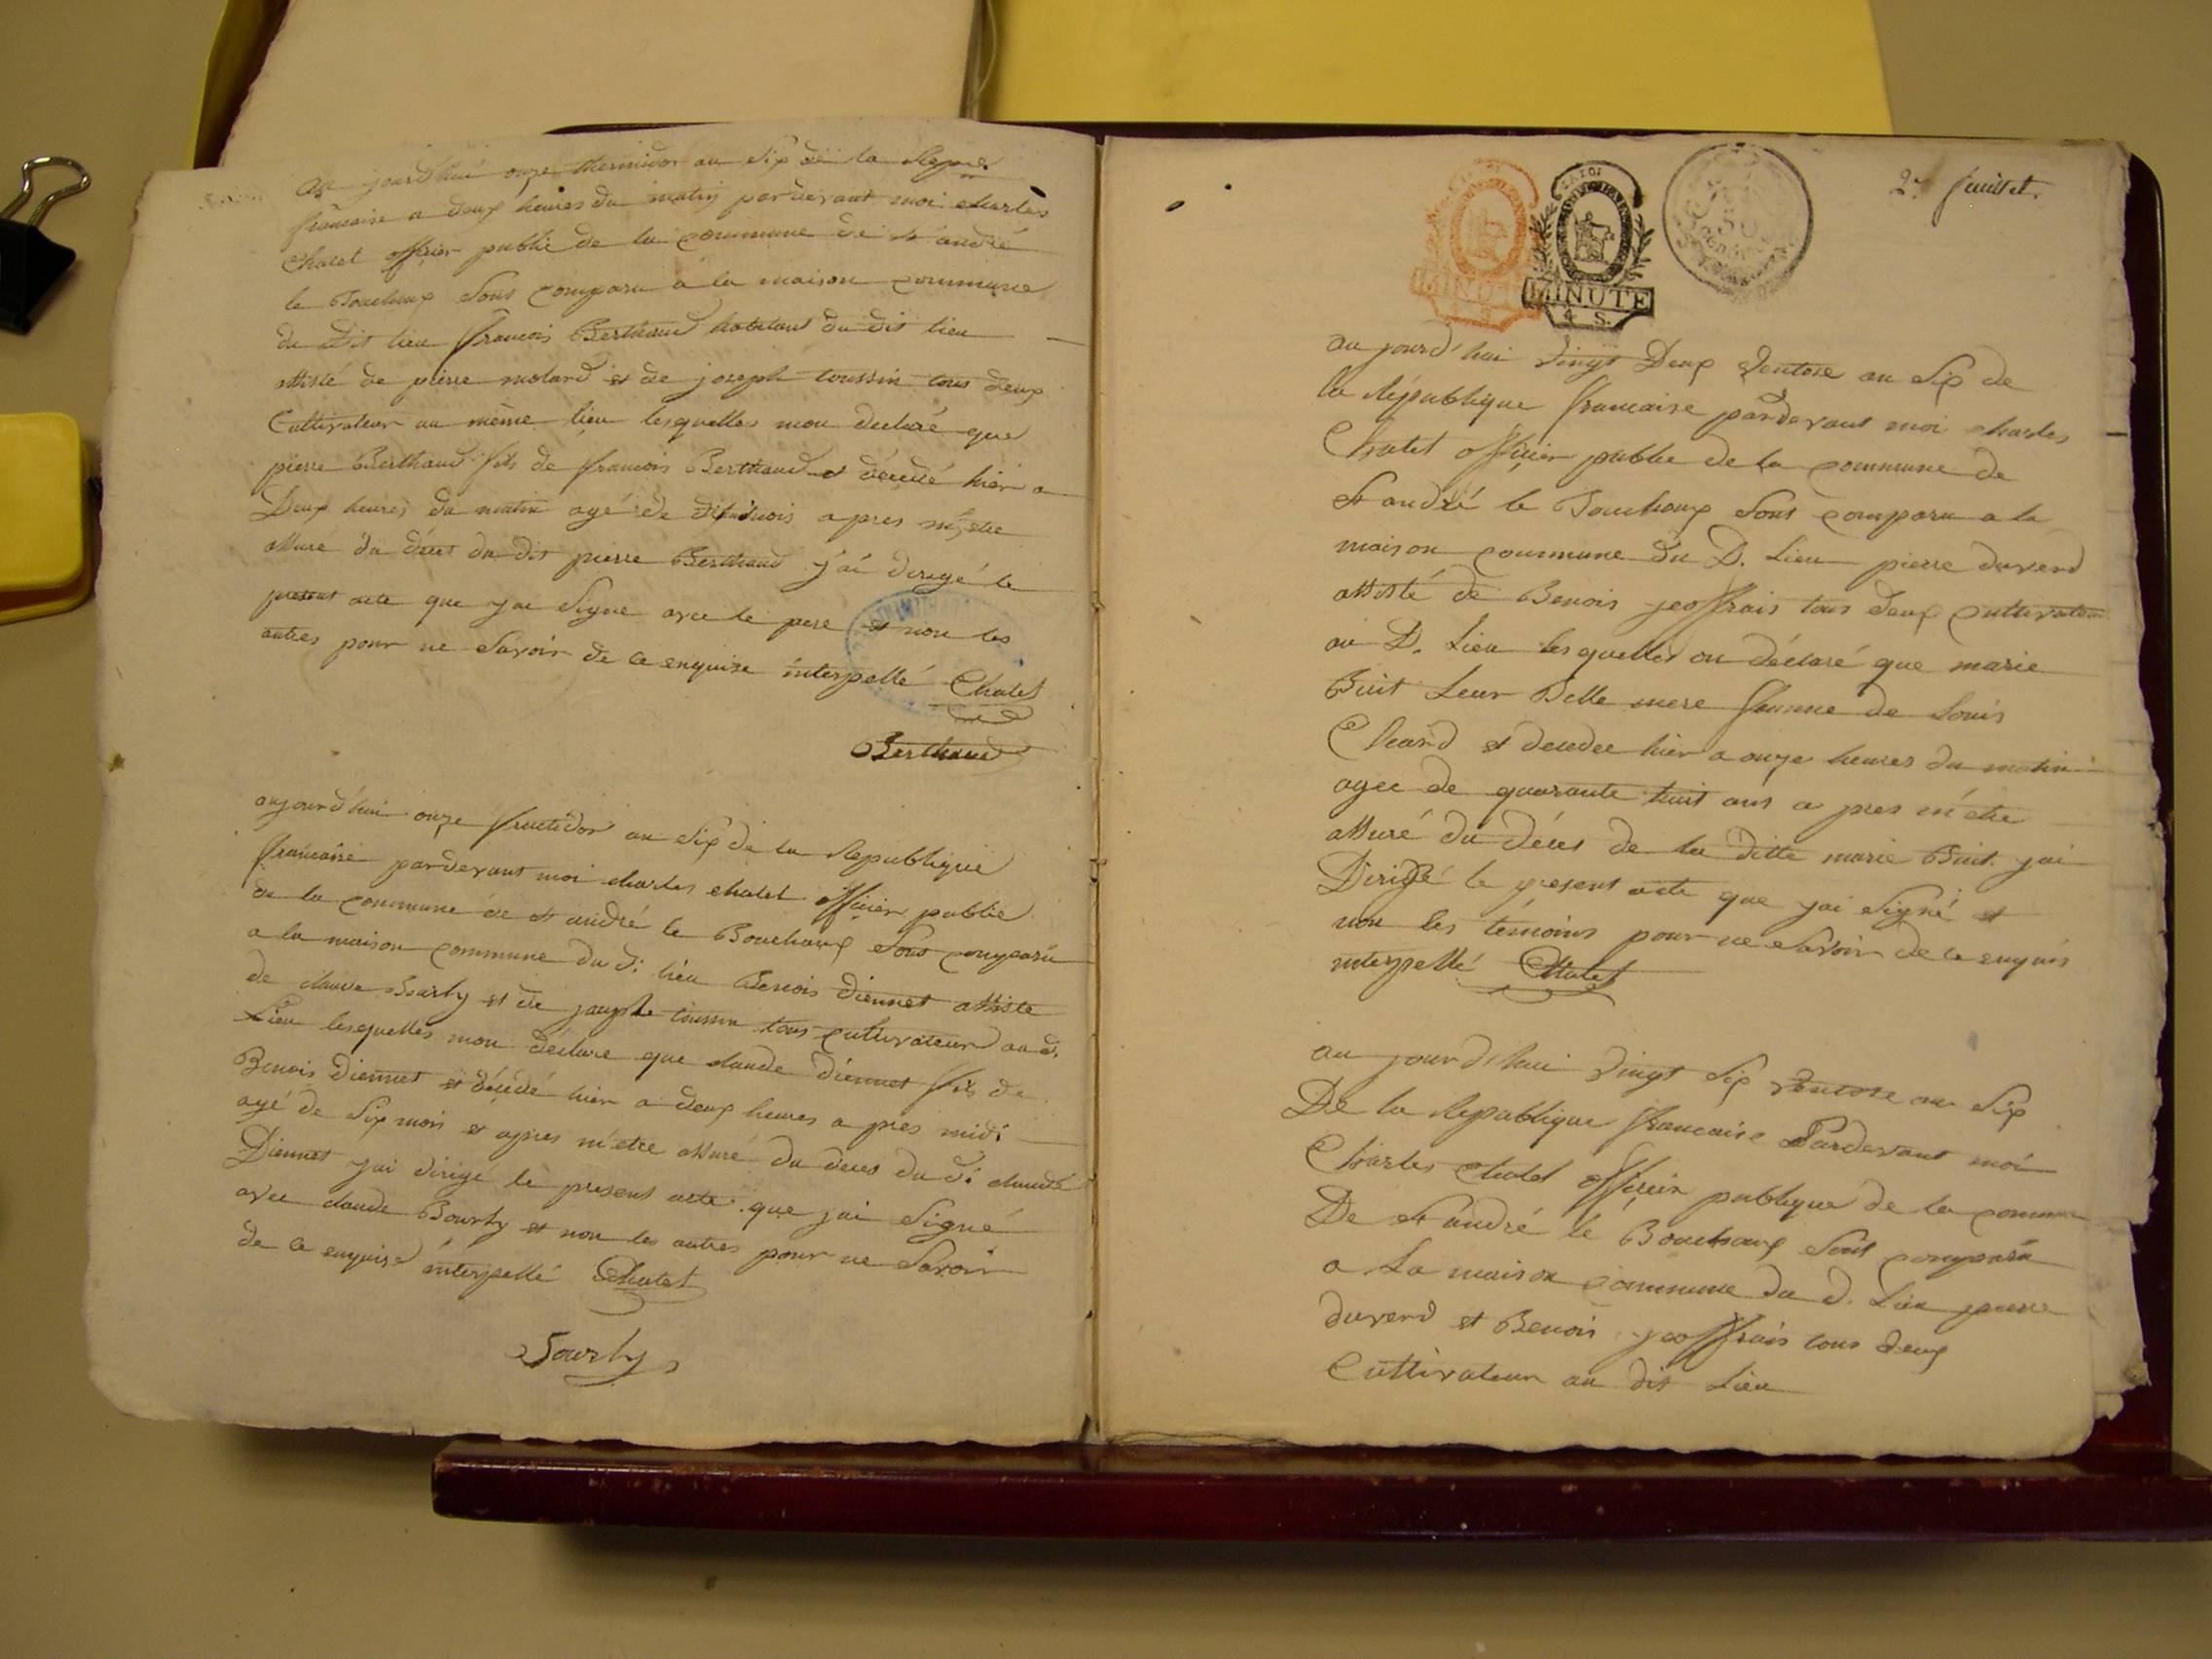 au jourdhui onze thermidor an six de la Repue
francaise a deux heures du matin pardevant moi charles
Chatet officier public de la commune de st andré
le Bouchoux Sont comparu a la maison commune
du Dit lieu francois Berthaud habitant du dit lieu
assisté de pierre molard et de joseph toussin tous deux
Cultivateur au même lieu lesquelles mon declaré que
pierre Berthaud fils de francois Berthaud et décedé hier a
Deux heures du matin agé de mois apres m'etre
assuré du déces du dit pierre Berthaud j'ai dirigé le
present acte que jai Signe avec le pere et non les
autres pour ne Savoir de ce enquise interpellé Chatet
Berthaud
aujourd'hui onze fructidor an Six de la Republique
francaise pardevant moi charles chatet officier public
de la commune de st andré le Bouchoux Sont comparu
a la maison commune du d. lieu Benois diennet assiste
de claude Bourly et de joseph toussin tous cultivateur au d.
Lieu lesquelles mon déclare que claude diennet fils de
Benois Diennet et décedé hier a deux heures a pres midi
agé de Six mois et apres m'etre assuré du deces du di claude
Diennet jai dirigé le present acte que jai Signé
avec claude Bourly et non les autres pour ne Savoir
de ce enquise interpellé Chatet
Bourly
2e feuillet.
MINUTE
MINUTE
4 S.
au jourd'hui vingt Deux Ventose an Six de
la République francaise pardevant moi charles
Chatet officier public de la commune de
st andré le Bouchoux Sont comparu a la
maison commune du D. Lieu pierre duverd
assisté de Benois jeoffrais tous deux cultivateur
au D. Lieu lesquelles on déclaré que marie
Buit Leur Belle mere femme de Louis
et decedee hier a onze heures du matin
agee de quarante huit ans a pres m'etre
assuré du déces de la ditte marie Buit jai
Dirigé le present acte que jai Signé et
non les temoins pour ne Savoir de ce enquis
interpellé Chatet
au jourd'hui vingt Six ventose an Six
De la Republique francaise Pardevant moi
Charles chatet officier publique de la commune
De st andré le Bouchoux Sont comparu
a La maison commune du d. Lieu pierre
duverd et Benois jeoffrais tous deux
Cultivateur au dit Lieu